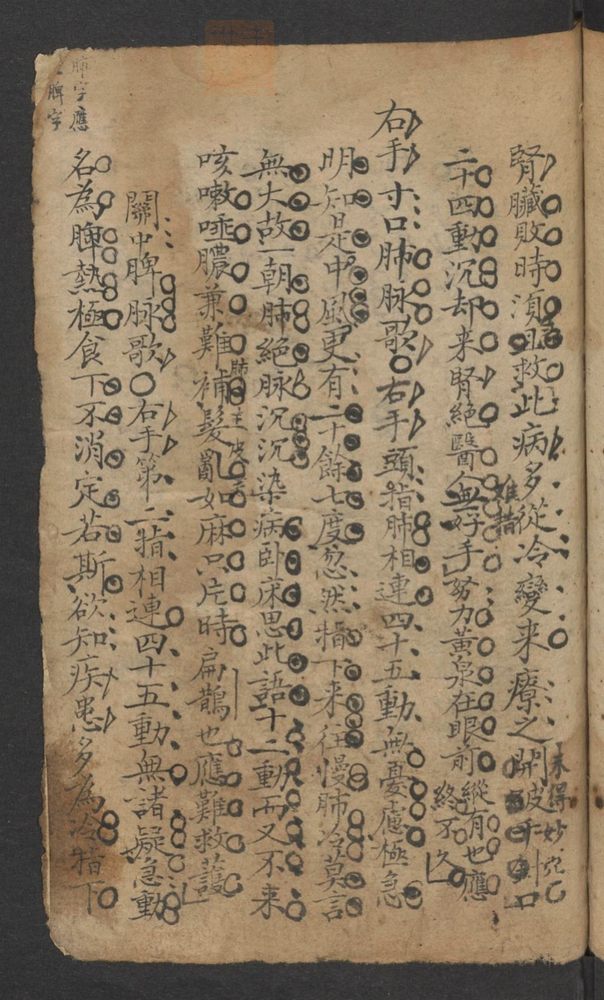 腎臟敗時須且救此病多從冷變來療之開皮千劍口
未得妙穴
二十四動沉却来腎絕醫人無好手努力黃泉在眼前縱有也應
終不久
右手寸口肺脉歌〇右手頭指肺相連四十五動無憂慮極急
明知是中風更有二十餘七度忽然指下来往慢肺冷莫言
無大故一朝肺絕脉沉沉染病卧床思此語十二動而又不来
咳嗽唾膿兼難補髮亂如麻只片時扁鵲也應難救護
肺主皮毛
關中脾脉歌〇右手第二指相連四十五動無諸疑急動
名為脾熱極食下不消定若斯欲知疾患多為冷指下
脾字應
脾字